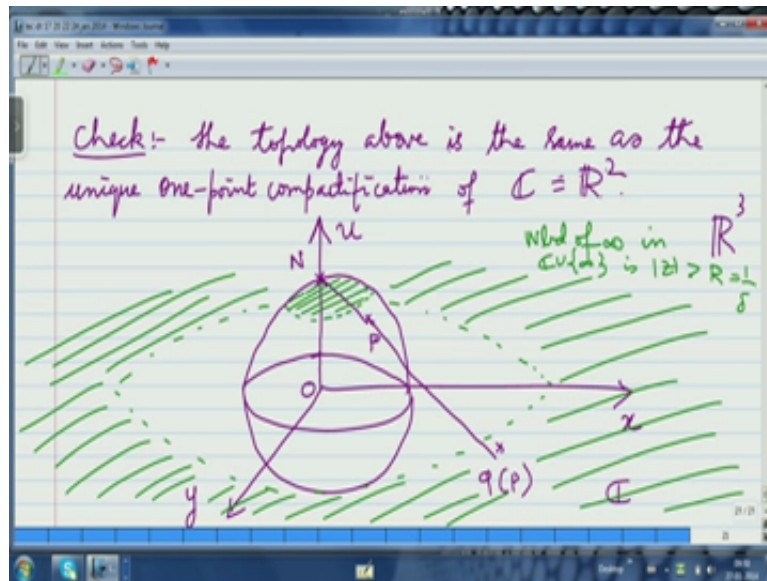 File Edit View Insert Actions Tools Help
Check:- the topology above is the same as the
unique one-point compactification of ℂ ≡ ℝ².
U
N
Nbd of ∞ in ℝ³
ℂ∪{∞} is |z| > R = 1/δ
P
O
x
y
q(P)
ℂ
21 / 21
21
Desktop